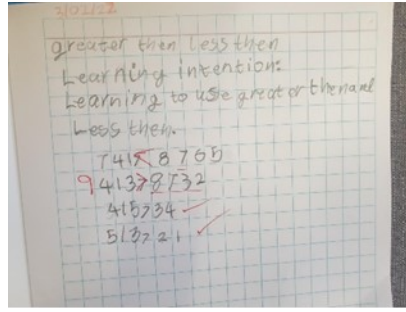 2/02/22
greater then less then
Learning intention:
Learning to use great or then and
Less then.
741 < 8765
9413 > 8732
415 > 34
513 > 21